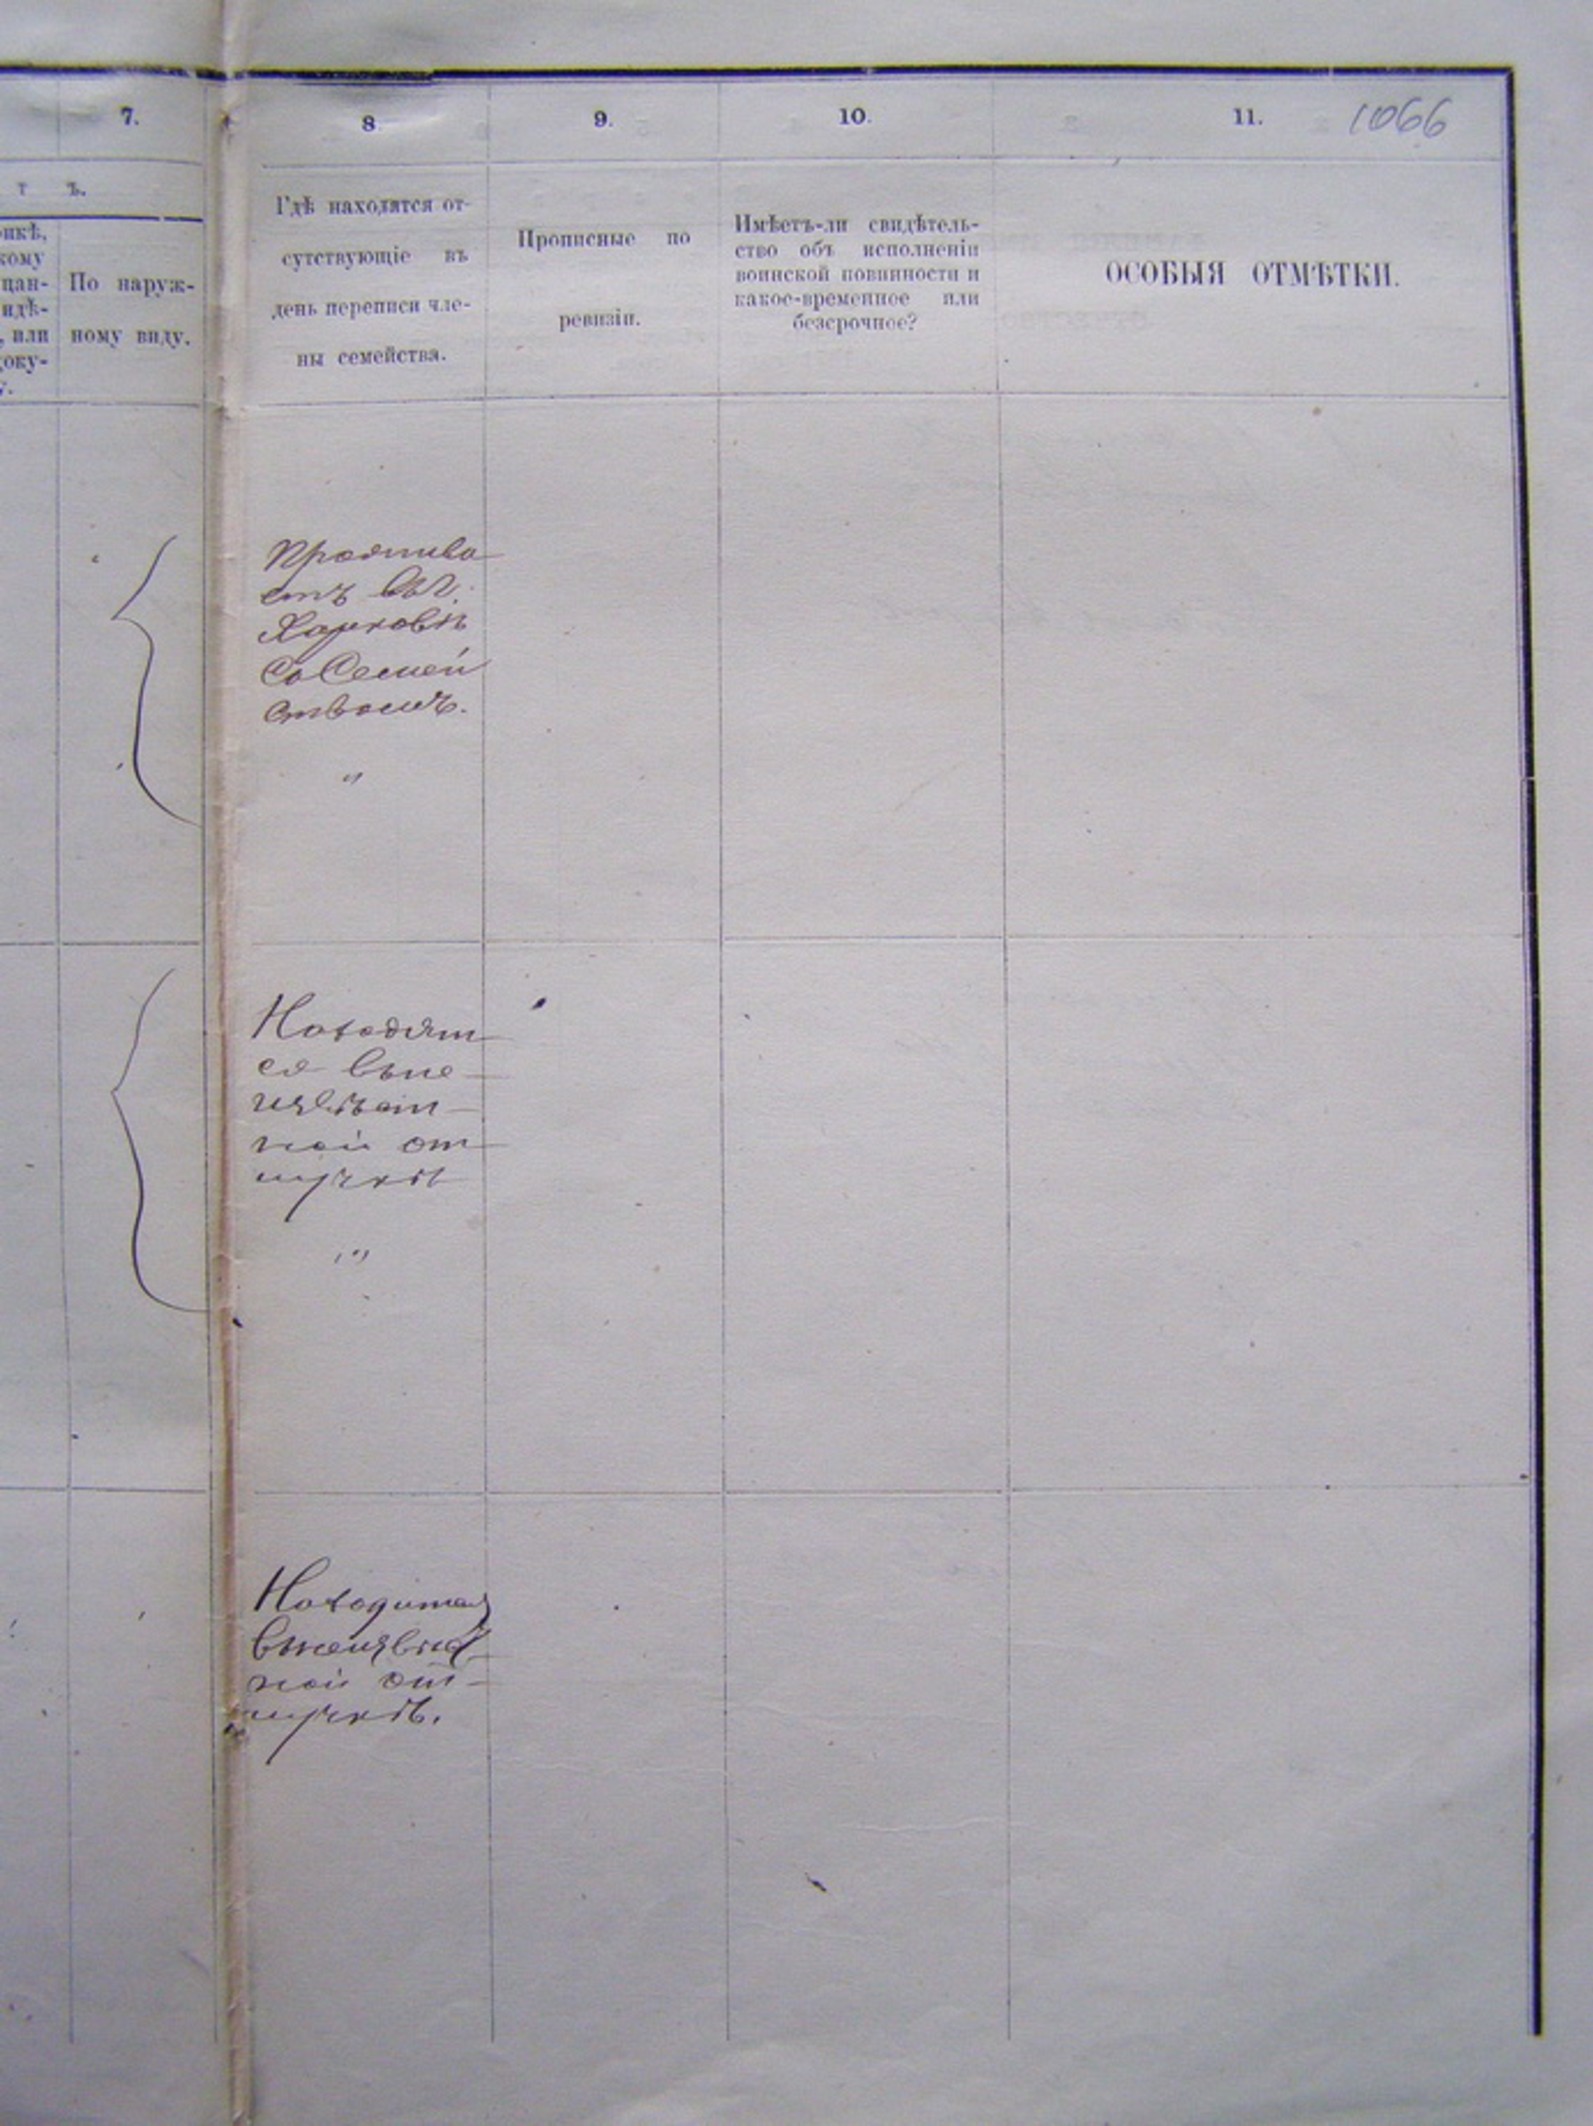 7.
8
9.
10.
11.
1066
т ъ.
икѣ,
кому
цан-
идѣ-
, или
оку-
По наруж-
ному виду.
Гдѣ находятся от-
сутствующіе въ
день переписи чле-
ны семейства.
Прописные по
ревизіи.
Имѣетъ-ли свидѣтель-
ство объ исполненіи
воинской повинности и
какое-временное или
безсрочное?
ОСОБЫЯ ОТМѢТКИ.
Прожива
етъ въ г.
Харковѣ
со Семей
ствомъ.
"
Находят
ся въне
извѣст
ной от
лучкѣ
"
Находится
внеизвѣст
ной от
лучкѣ.